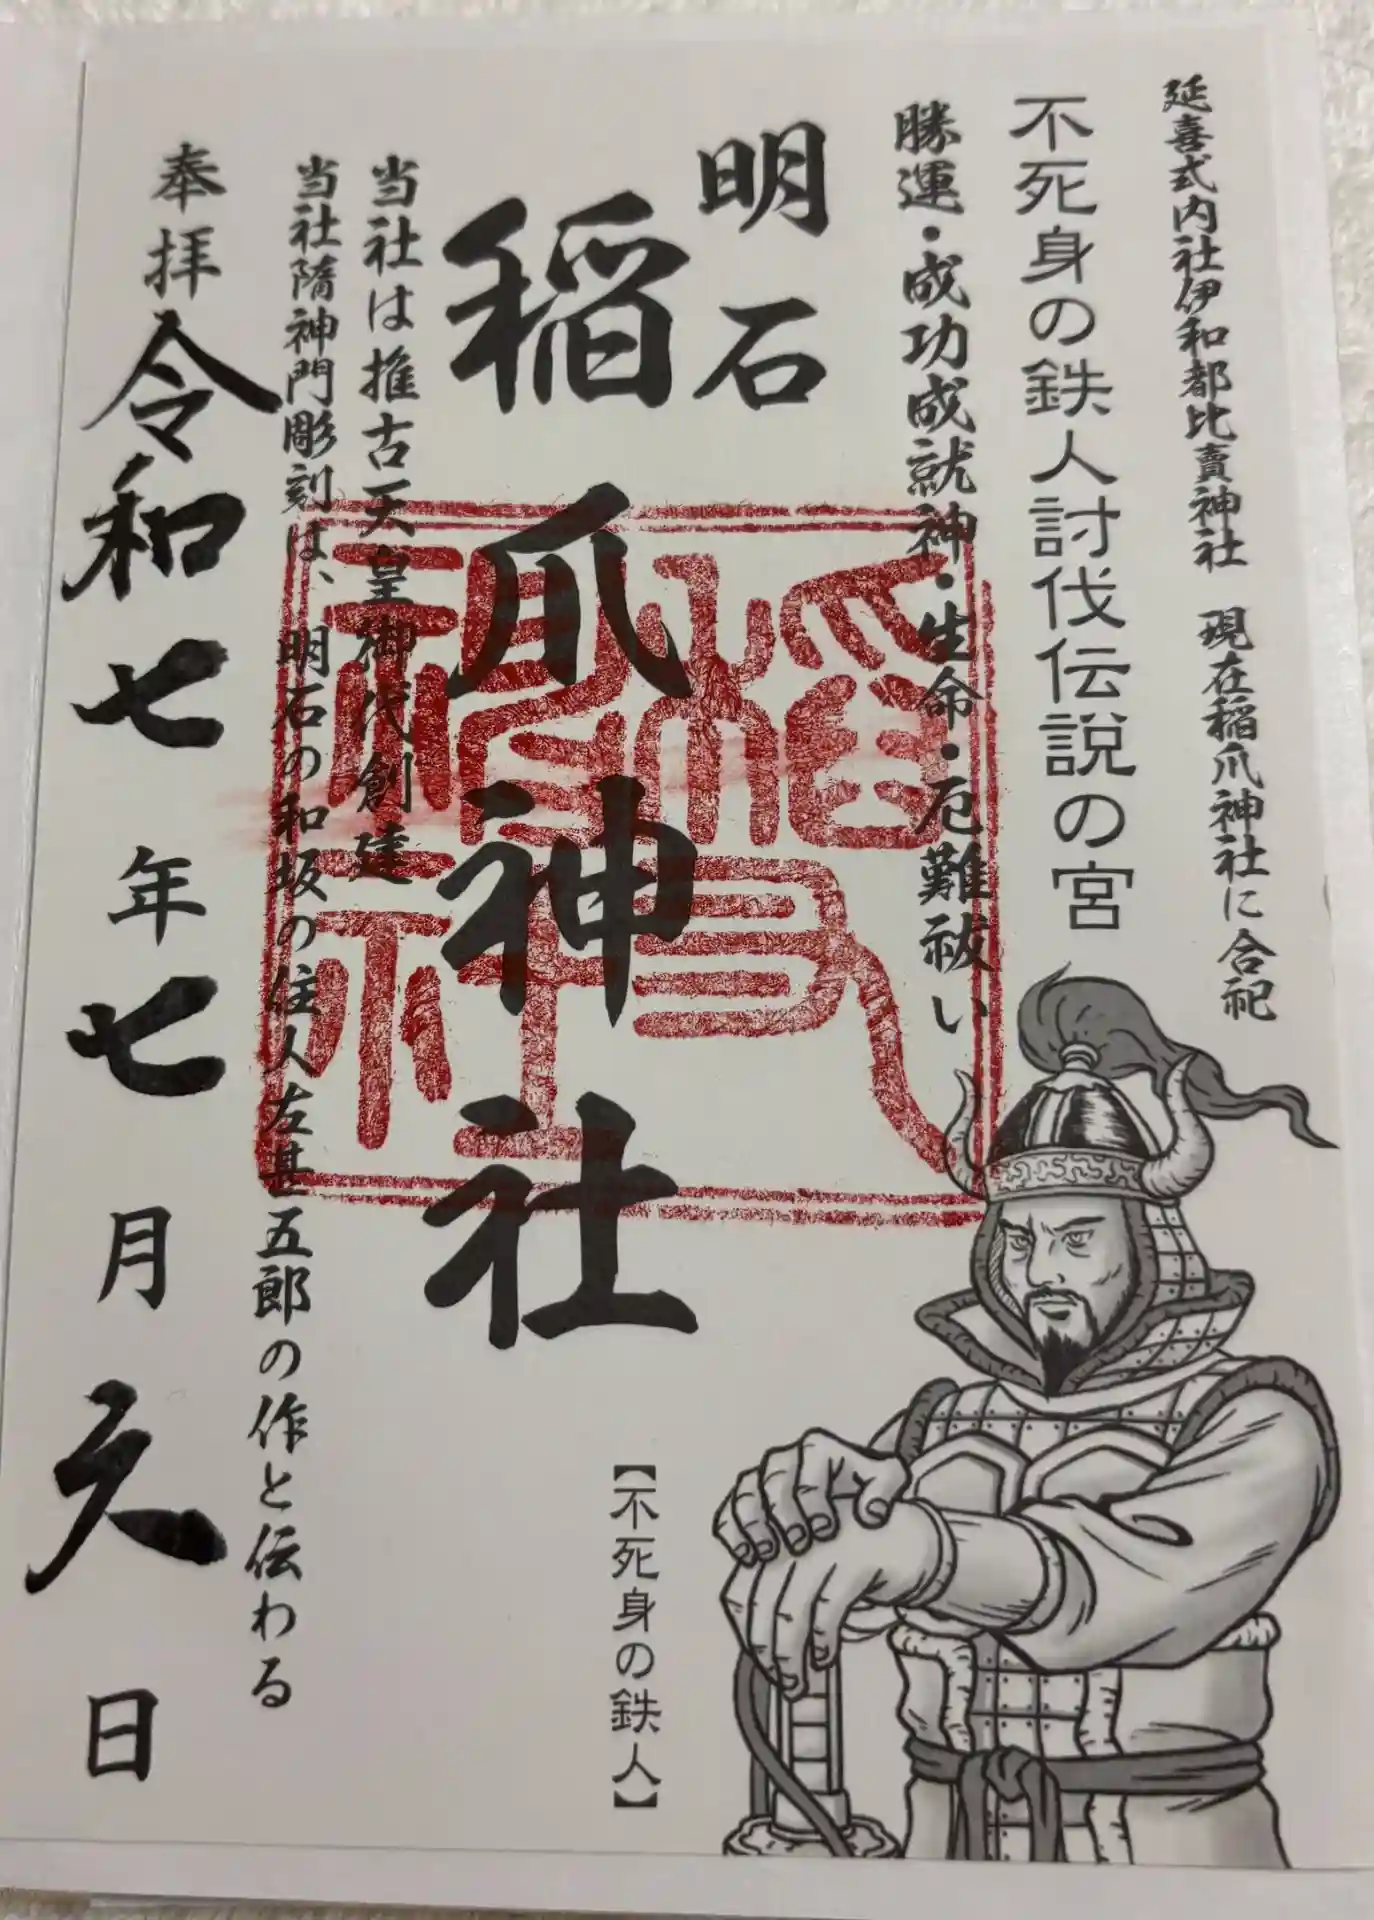 延喜式内社伊和都比賣神社 現在稲爪神社に合祀
不死身の鉄人討伐伝説の宮
勝運・成功成就神・生命・厄難祓い
明石
稲爪神社
当社は推古天皇御代創建
当社隋神門彫刻は、明石の和坂の住人左甚五郎の作と伝わる
奉拝
令和七年七月 日
【不死身の鉄人】